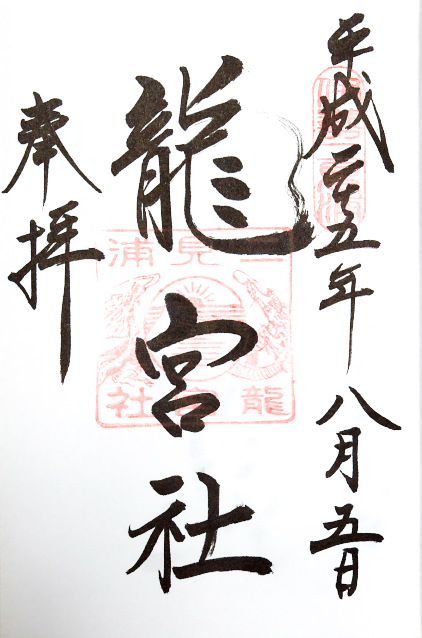 平成二十五年八月五日
龍宮社
奉拝
二見浦
龍宮社